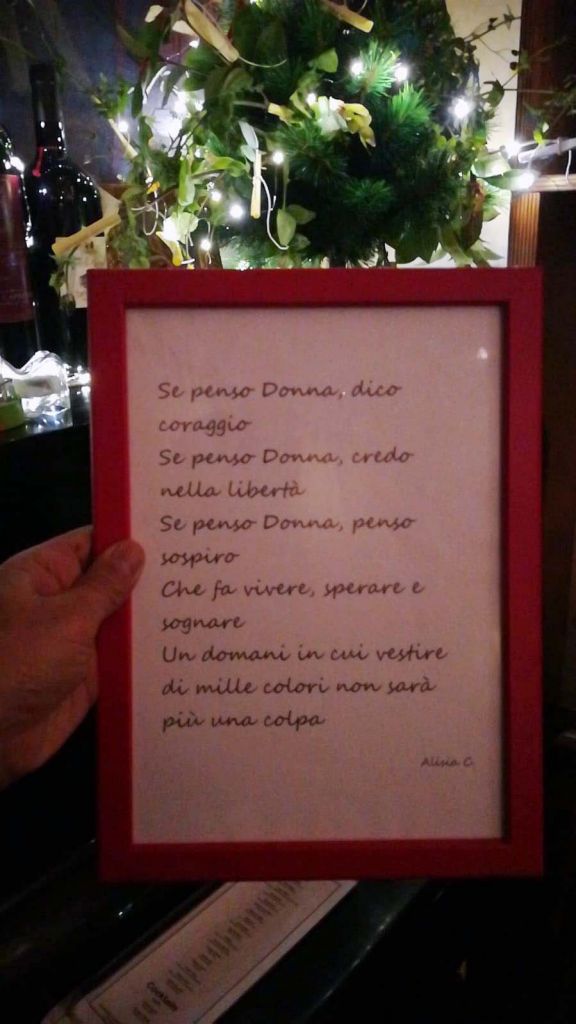 Se penso Donna, dico
coraggio
Se penso Donna, credo
nella libertà
Se penso Donna, penso
sospiro
Che fa vivere, sperare e
sognare
Un domani in cui vestire
di mille colori non sarà
più una colpa
Alisia C.
Cocktails